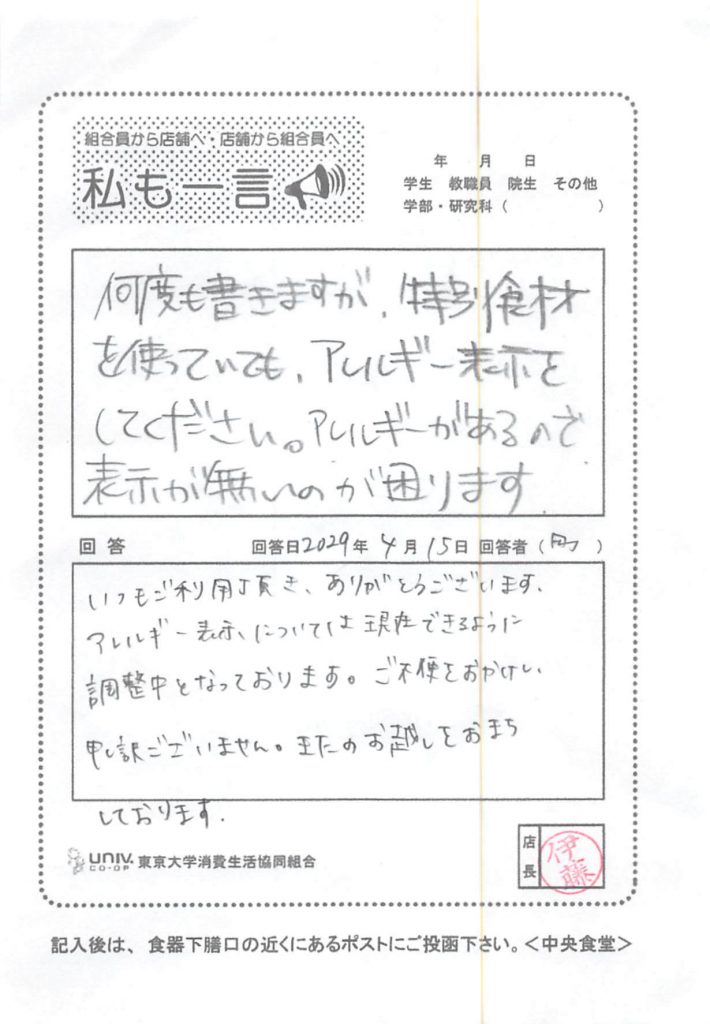 組合員から店舗へ・店舗から組合員へ
私も一言
年 月 日
学生 教職員 院生 その他
学部・研究科（ ）
何度も書きますが、特別食材
を使っていても、アレルギー表示を
してください。アレルギーがあるので
表示が無いのが困ります
回答 回答日2029年4月15日 回答者（ ）
いつもご利用頂き、ありがとうございます。
アレルギー表示については現在できるように
調整中となっております。ご不便をおかけし
申し訳ございません。またのお越しをおまち
しております。
UNIV. CO-OP 東京大学消費生活協同組合
店長
伊藤
記入後は、食器下膳口の近くにあるポストにご投函下さい。＜中央食堂＞